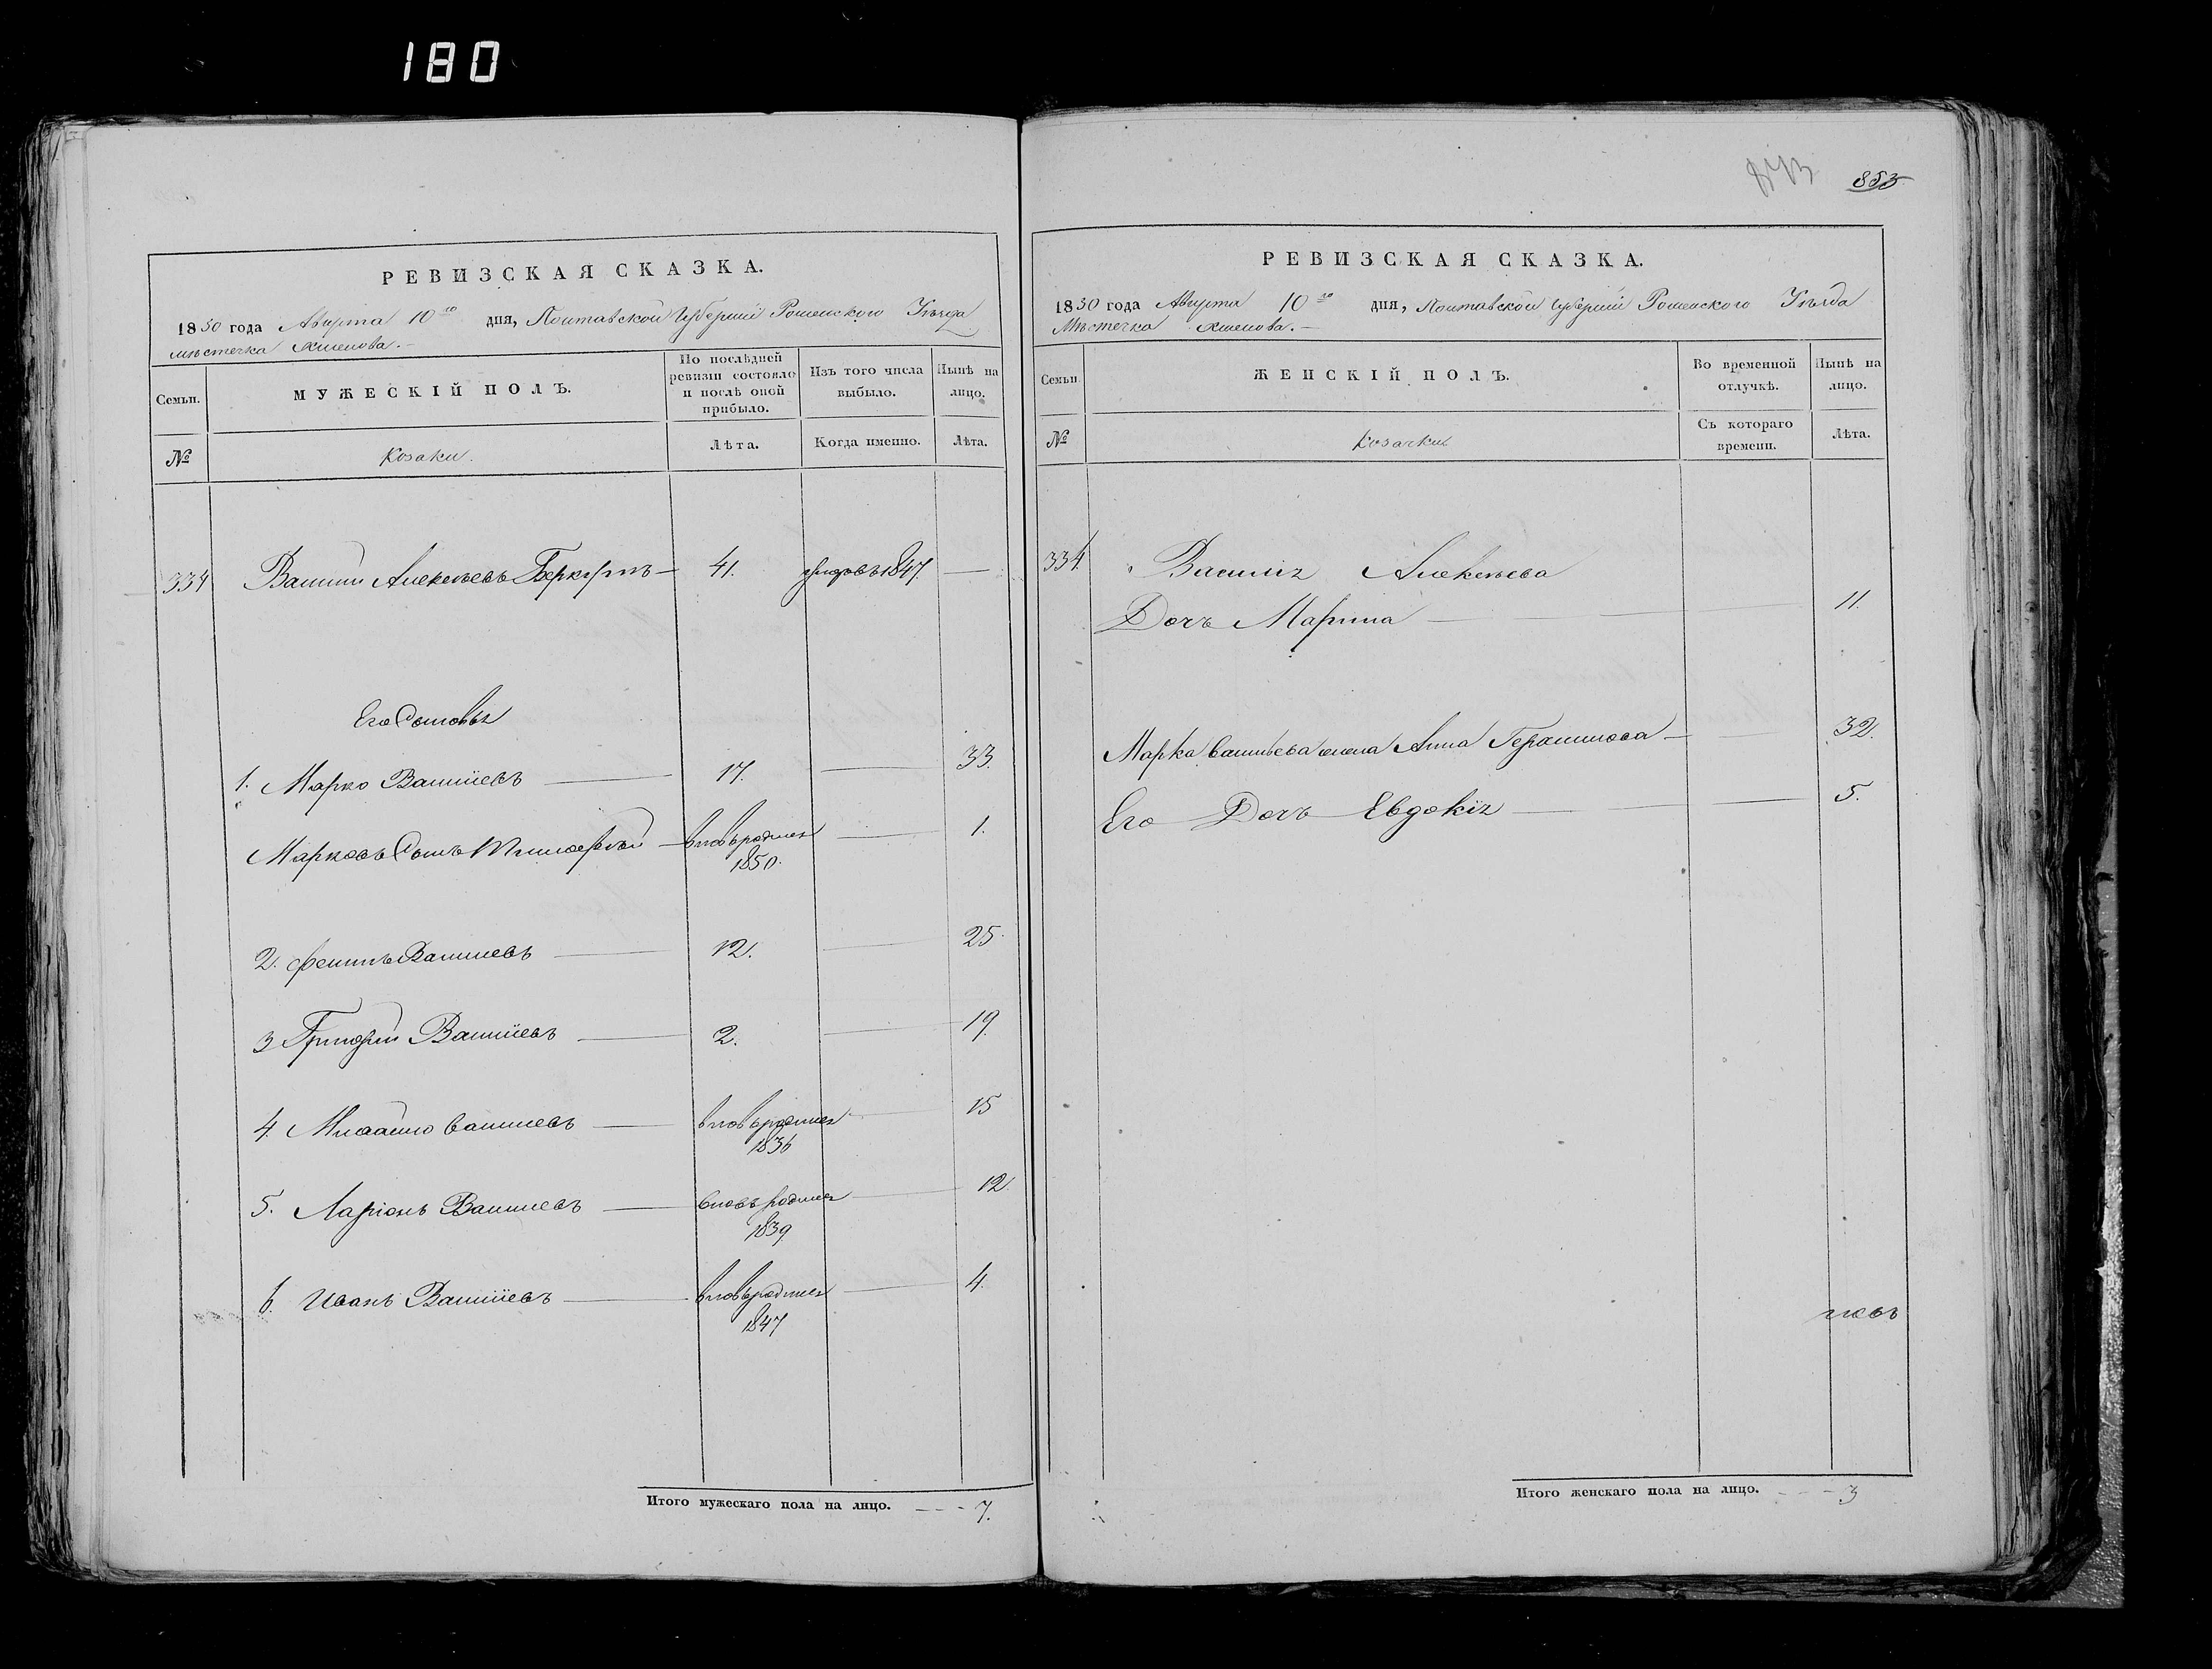 180
РЕВИЗСКАЯ СКАЗКА.
1850 года Августа 10го дня, Полтавской Губерніи Роменского Уѣзда
мѣстечка
Семьи.
МУЖЕСКІЙ ПОЛЪ.
По послѣдней ревизіи состояло и послѣ оной прибыло.
Изъ того числа выбыло.
Нынѣ на лицо.
№
Козаки.
Лѣта.
Когда именно.
Лѣта.
334 Василий Алексѣевъ 41. умеръ въ 1847. —
Его Сыновья
1. Марко Василіевъ — 17. — 33.
Марковъ Сынъ Тимофѣй — вновь родился — 1.
1850.
2. Василиевъ — 12. — 25.
3 Григорій Василіевъ — 2. — 19.
4. Михайло Василиевъ — вновь родился — 15
1836
5. Ларіонъ Василиевъ — вновь родился — 12.
1839
6. Иванъ Василіевъ — вновь родился — 4.
1847
Итого мужескаго пола на лицо. - - - 7.
853
РЕВИЗСКАЯ СКАЗКА.
1850 года Августа 10го дня, Полтавской Губерніи Роменского Уѣзда
Мѣстечка
Семьи.
ЖЕНСКІЙ ПОЛЪ.
Во временной отлучкѣ.
Нынѣ на лицо.
№
Козачки
Съ котораго времени.
Лѣта.
334. Василія Алексѣева
Дочь Марина — 11.
Марка Васильева жена Анна Герасимова — 32.
Его Дочь Евдокія — 5.
Итого женскаго пола на лицо. - - - 3